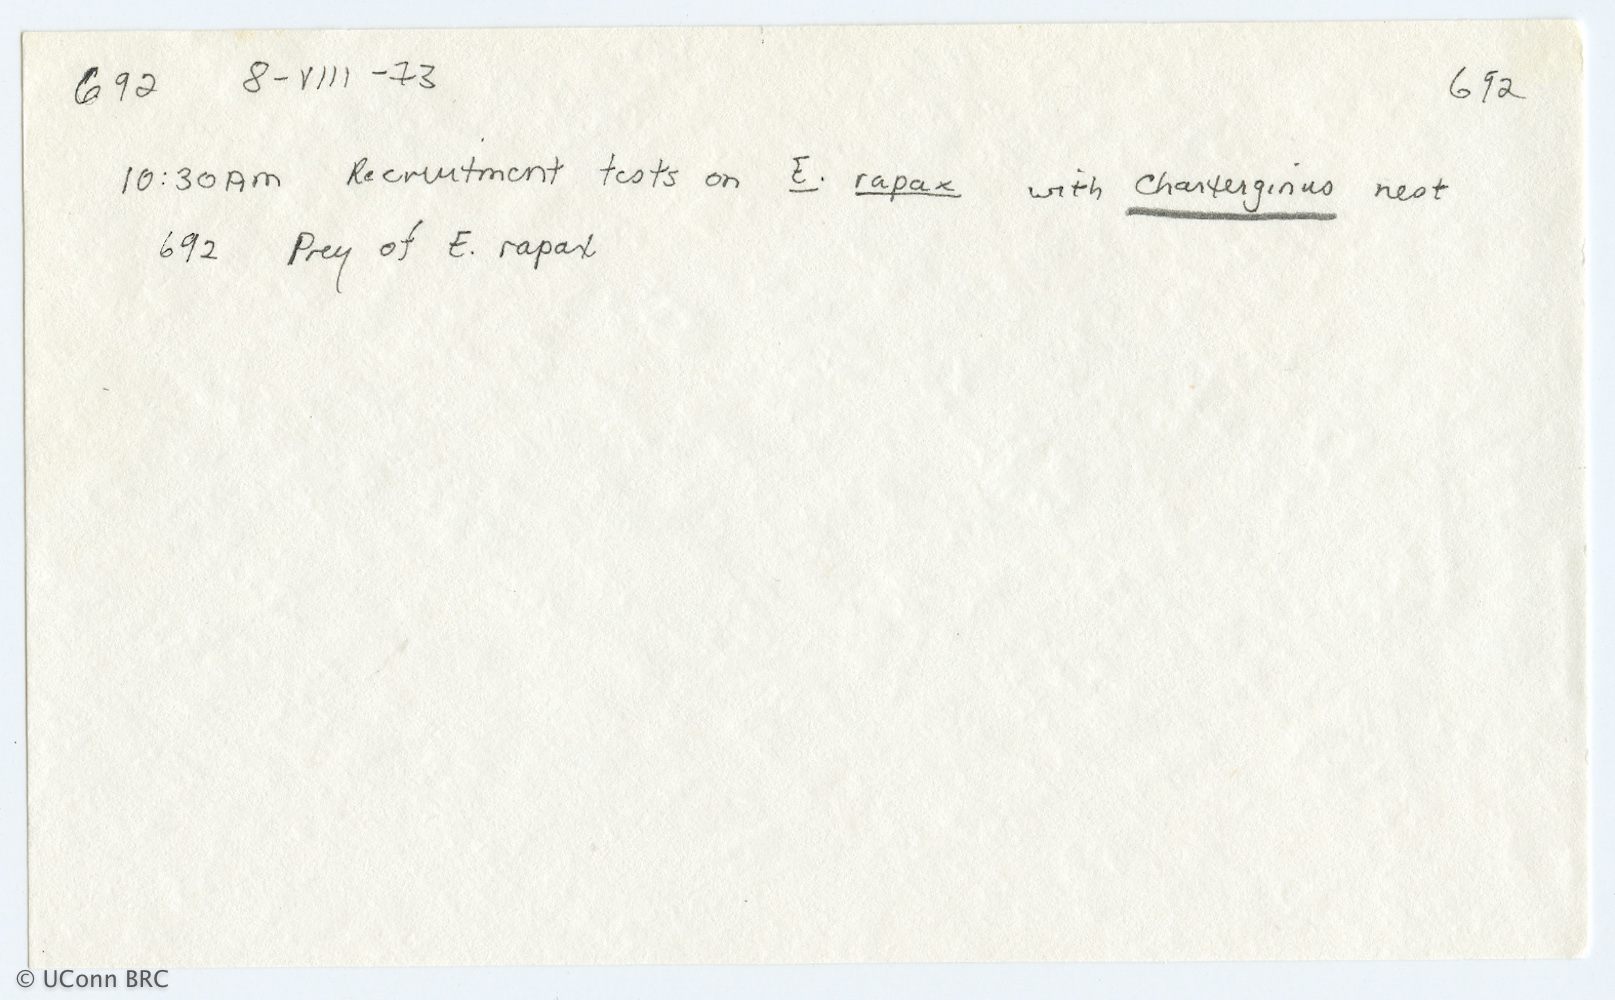 692 8-VIII-73 692
10:30 Am Recruitment tests on E. rapax with Charterginus nest
692 Prey of E. rapax
© UConn BRC